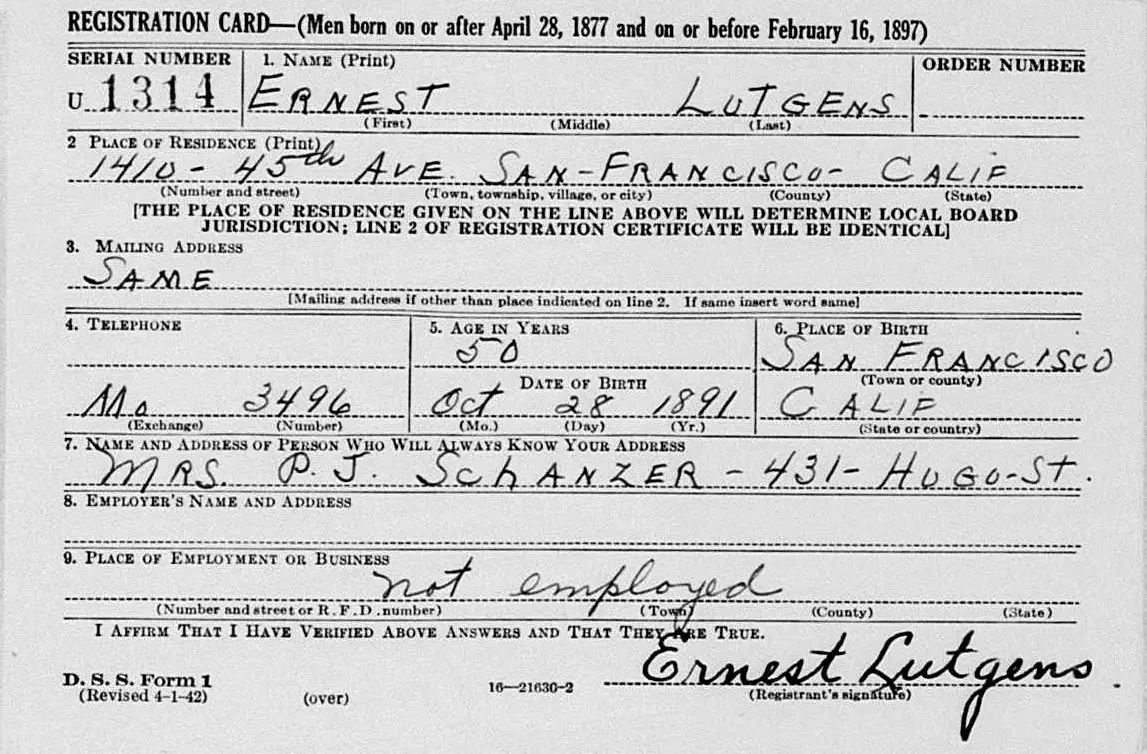 REGISTRATION CARD—(Men born on or after April 28, 1877 and on or before February 16, 1897)
SERIAL NUMBER 1. NAME (Print) ORDER NUMBER
U 1314 ERNEST LUTGENS
(First) (Middle) (Last)
2 PLACE OF RESIDENCE (Print)
1410 - 45th AVE. SAN-FRANCISCO- CALIF
(Number and street) (Town, township, village, or city) (County) (State)
[THE PLACE OF RESIDENCE GIVEN ON THE LINE ABOVE WILL DETERMINE LOCAL BOARD
JURISDICTION; LINE 2 OF REGISTRATION CERTIFICATE WILL BE IDENTICAL]
3. MAILING ADDRESS
SAME
[Mailing address if other than place indicated on line 2. If same insert word same]
4. TELEPHONE 5. AGE IN YEARS 6. PLACE OF BIRTH
50 SAN FRANCISCO
DATE OF BIRTH (Town or county)
Mo 3496 Oct 28 1891 CALIF
(Exchange) (Number) (Mo.) (Day) (Yr.) (State or country)
7. NAME AND ADDRESS OF PERSON WHO WILL ALWAYS KNOW YOUR ADDRESS
MRS. P. J. SchANZER - 431 - HUGO-ST.
8. EMPLOYER'S NAME AND ADDRESS
9. PLACE OF EMPLOYMENT OR BUSINESS
not employed
(Number and street or R. F. D. number) (Town) (County) (State)
I AFFIRM THAT I HAVE VERIFIED ABOVE ANSWERS AND THAT THEY ARE TRUE.
Ernest Lutgens
D. S. S. Form 1
(Revised 4-1-42) (over) 16—21630-2 (Registrant's signature)